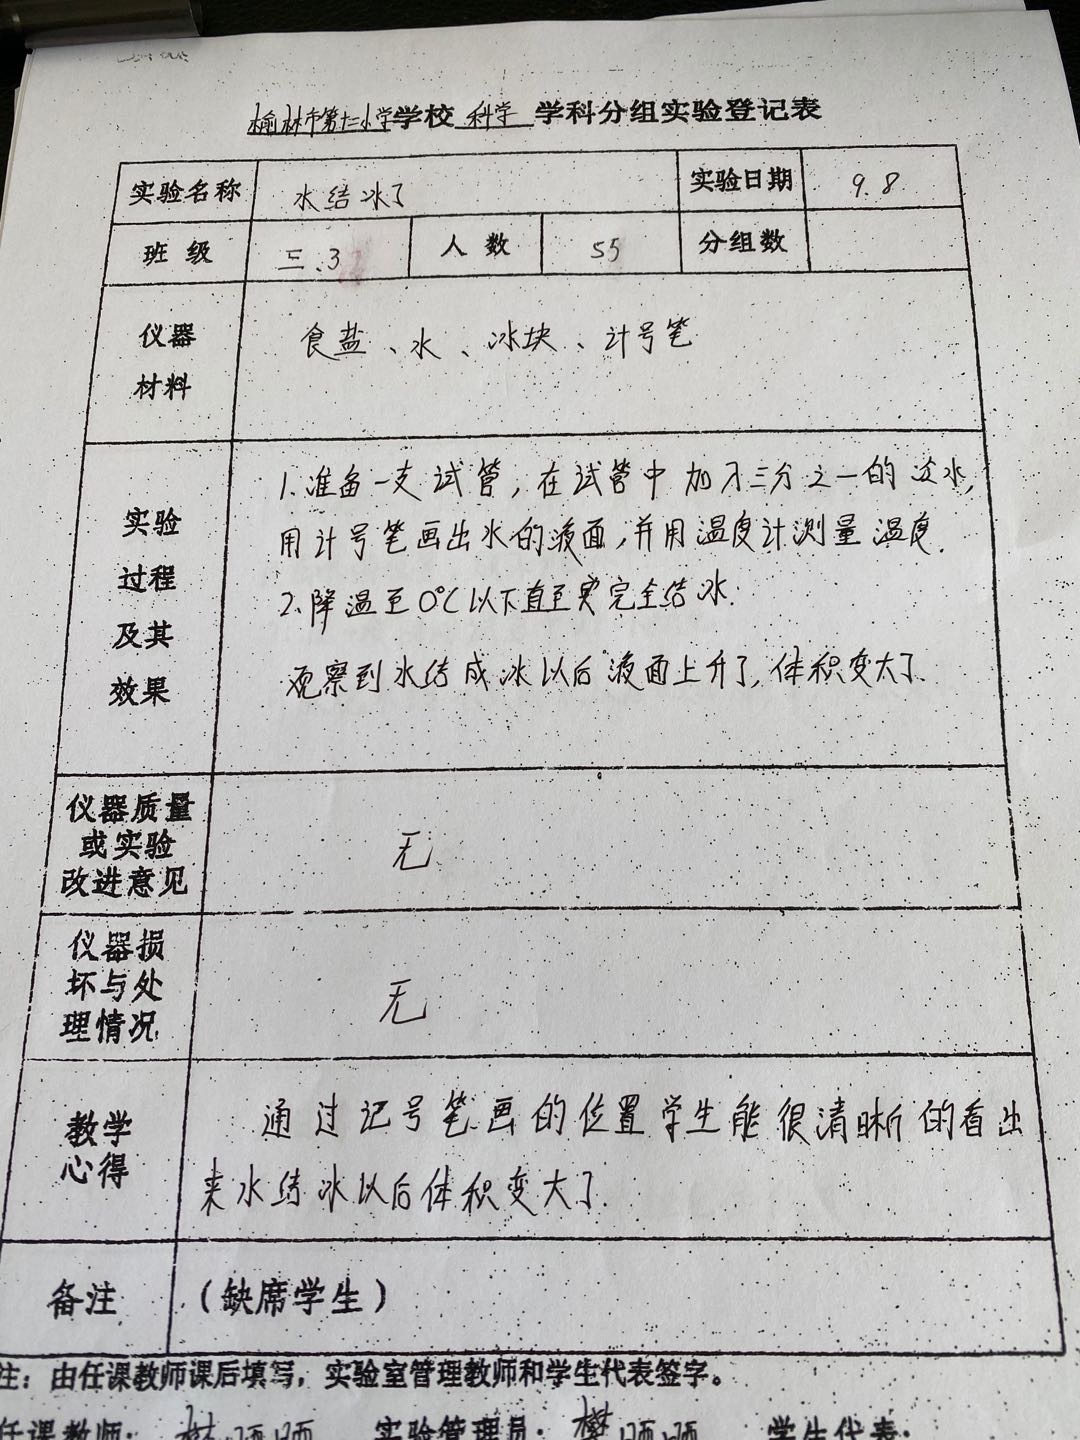 榆林市第十二小学学校 科学 学科分组实验登记表
实验名称 水结冰了 实验日期 9.8
班级 三.3 人数 55 分组数
仪器材料 食盐、水、冰块、计号笔
实验过程及其效果
1.准备一支试管,在试管中加入三分之一的淡水,
用计号笔画出水的液面,并用温度计测量温度.
2.降温至0℃以下直至完全结冰.
观察到水结成冰以后液面上升了,体积变大了.
仪器质量或实验改进意见 无
仪器损坏与处理情况 无
教学心得
通过记号笔画的位置学生能很清晰的看出
来水结冰以后体积变大了.
备注 (缺席学生)
注：由任课教师课后填写，实验室管理教师和学生代表签字。
任课教师： 实验管理员： 樊 学生代表：